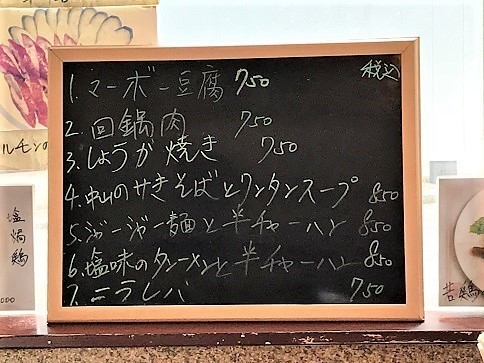 税込
1. マーボー豆腐 750
2. 回鍋肉 750
3. しょうが焼き 750
4. 中山のサきそばとワンタンスープ 850
5. ジャージャー麺と半チャーハン 850
6. 塩味のタンメンと半チャーハン 850
7. ニラレバ 750
ルモンの
塩焗鶏
000